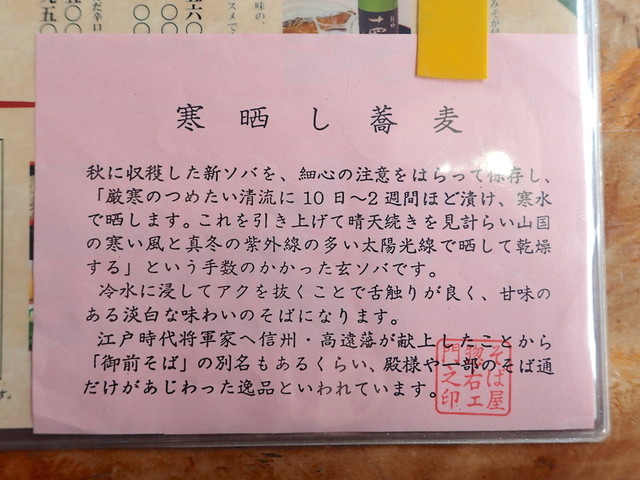 寒晒し蕎麦
秋に収穫した新ソバを、細心の注意をはらって保存し、
「厳寒のつめたい清流に10日～2週間ほど漬け、寒水
で晒します。これを引き上げて晴天続きを見計らい山国
の寒い風と真冬の紫外線の多い太陽光線で晒して乾燥
する」という手数のかかった玄ソバです。
冷水に浸してアクを抜くことで舌触りが良く、甘味の
ある淡白な味わいのそばになります。
江戸時代将軍家へ信州・高遠藩が献上したことから
「御前そば」の別名もあるくらい、殿様や一部のそば通
だけがあじわった逸品といわれています。
そば屋
惣右エ
門之印